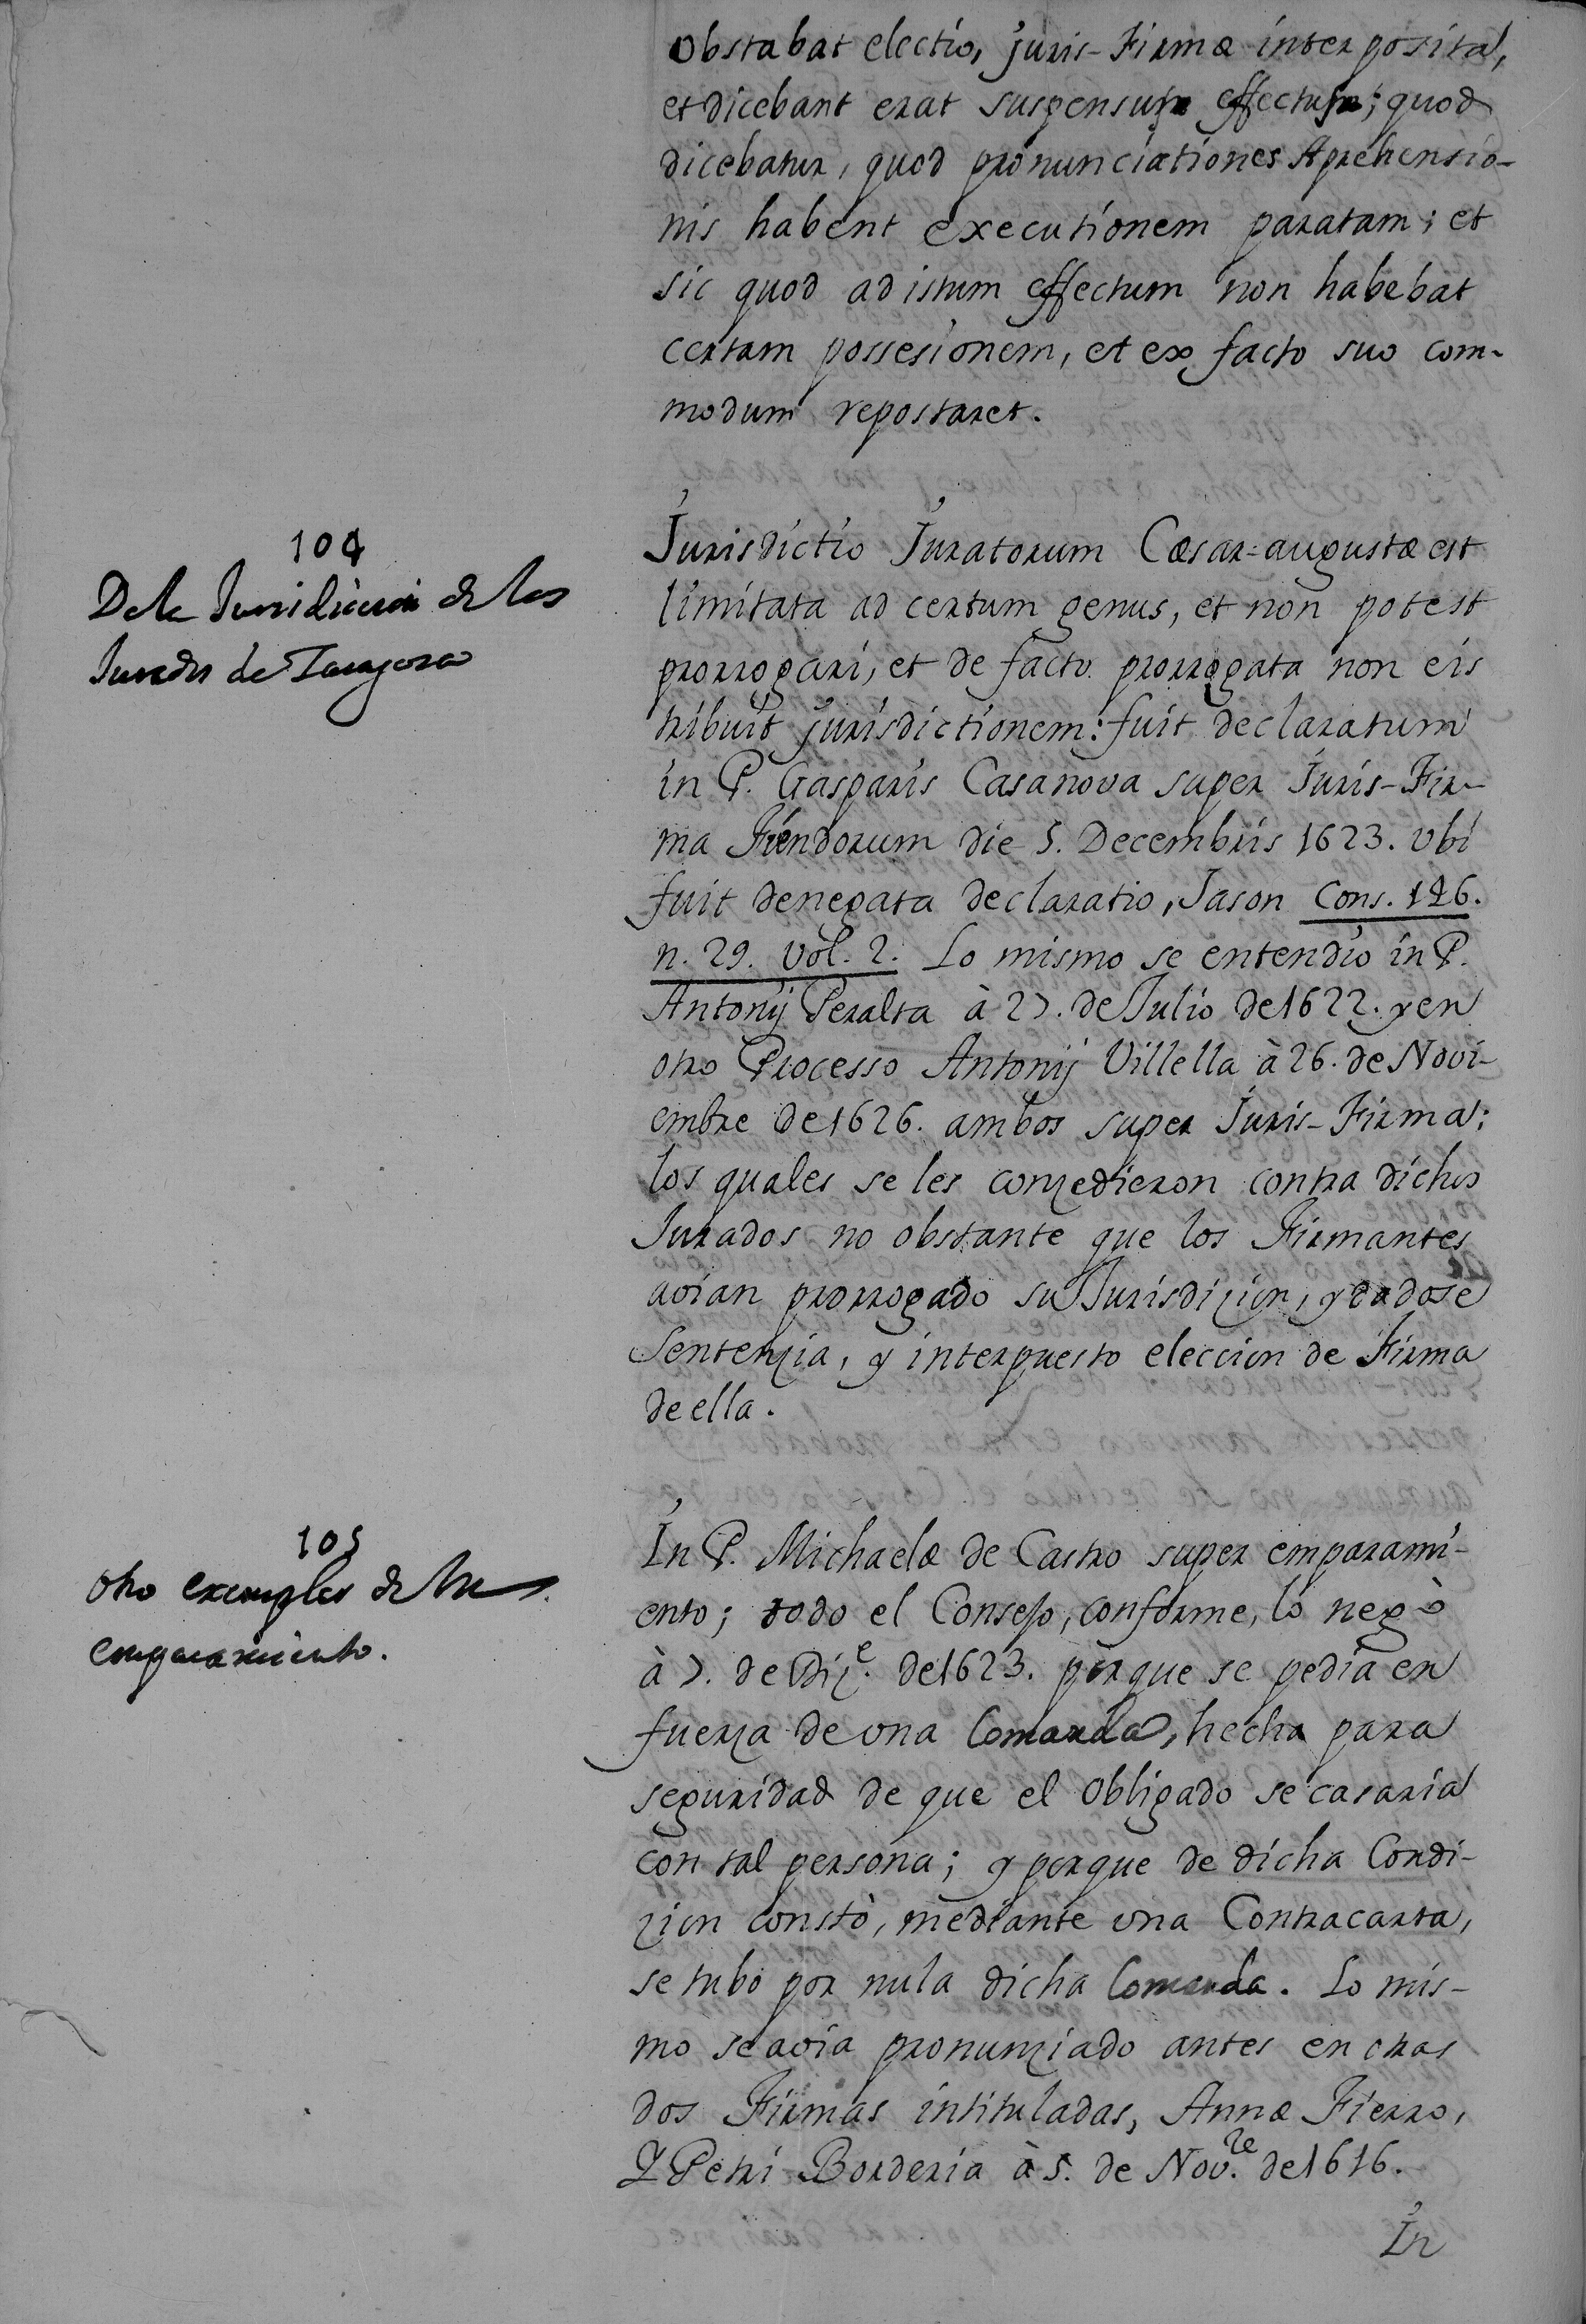 Obstabat electio, juris-Firmæ interposita,
et dicebant erat suspensum effectum; quod
dicebatur, quod pronunciationes Aprehensio-
nis habent executionem paratam; et
sic quod ad istum effectum non habebat
certam possesionem, et ex facto suo com-
modum repostaret.
104
De la Jurisdicion de los
Jurados de Zaragoza
Jurisdictio Juratorum Cæsar=augustæ est
limitata ad certum genus, et non potest
prorrogari, et de facto prorrogata non eis
tribuit jurisdictionem: fuit declaratum
in P. Gasparis Casanova super Juris-Fir-
ma Fiendorum die 5. Decembris 1623. Vbi
fuit denegata declaratio, Jason Cons. 146.
n. 29. vol. 2. Lo mismo se entendio in P.
Antonij Peralta à 27. de Julio de 1622. y en
otro Processo Antonij Villella à 26. de Novi-
embre de 1626. ambos super Juris-Firma;
los quales se les conzedieron contra dichos
Jurados no obstante que los Firmantes
avian prorrogado su Jurisdizion, y dadose
Sentenzia, y interpuesto eleccion de Firma
de ella.
105
otro exemples de
emparamiento.
In P. Michaelæ de Castro super emparami-
ento; todo el Consejo, conforme, lo negò
à 7. de Diz.e de 1623. porque se pedia en
fuerza de vna Comanda, hecha para
seguridad de que el Obligado se casaria
con tal persona; y porque de dicha Condi-
zion constò, mediante vna Contracarta,
se tubo por nula dicha Comanda. Lo mis-
mo se avia pronunziado antes en otras
dos Firmas intituladas, Annæ Fierro,
Y Petri Borderia à 5. de Nov.re de 1616.
In